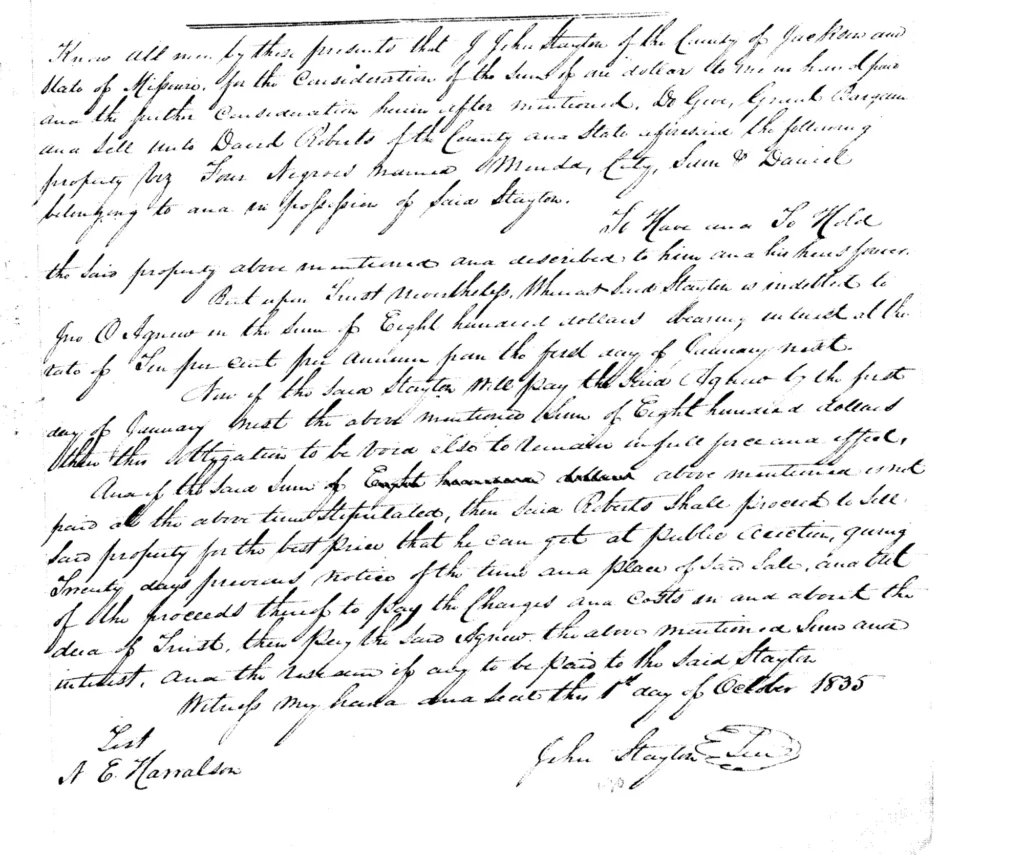 Know all men by these presents that I John Stayton of the County of Jackson and
State of Missouri, for the Consideration of the Sum of one dollar to me in hand paid
and the further Consideration herein after mentioned, Do Give, Grant Bargain
and Sell unto David Roberts of the County and State aforesaid the following
property Viz Four Negroes named Minda, City, Sam & Daniel
belonging to and in possession of Said Stayton.
To Have and To Hold
the Said property above mentioned and described to him and his heirs forever.
But upon Trust Nevertheless, Whereas Said Stayton is indebted to
Jno O Agnew in the Sum of Eight hundred dollars bearing interest at the
rate of Ten per cent per annum from the first day of January next
Now if the Said Stayton Will pay the Said Agnew by the first
day of January next the above mentioned Sum of Eight hundred dollars
then this obligation to be Void else to remain in full force and effect,
And if the Said Sum of Eight hundred dollars above mentioned is not
paid at the above time Stipulated, then Said Roberts Shall proceed to Sell
Said property for the best price that he can get at public auction, giving
Twenty days previous notice of the time and place of Said Sale, and out
of the proceeds thereof to pay the Charges and Costs in and about the
deed of Trust, then pay the Said Agnew, the above mentioned Sum and
interest, and the residue if any to be paid to the Said Stayton
Witness my hand and Seal this 1st day of October 1835
Test
N E. Harralson
John Stayton Seal